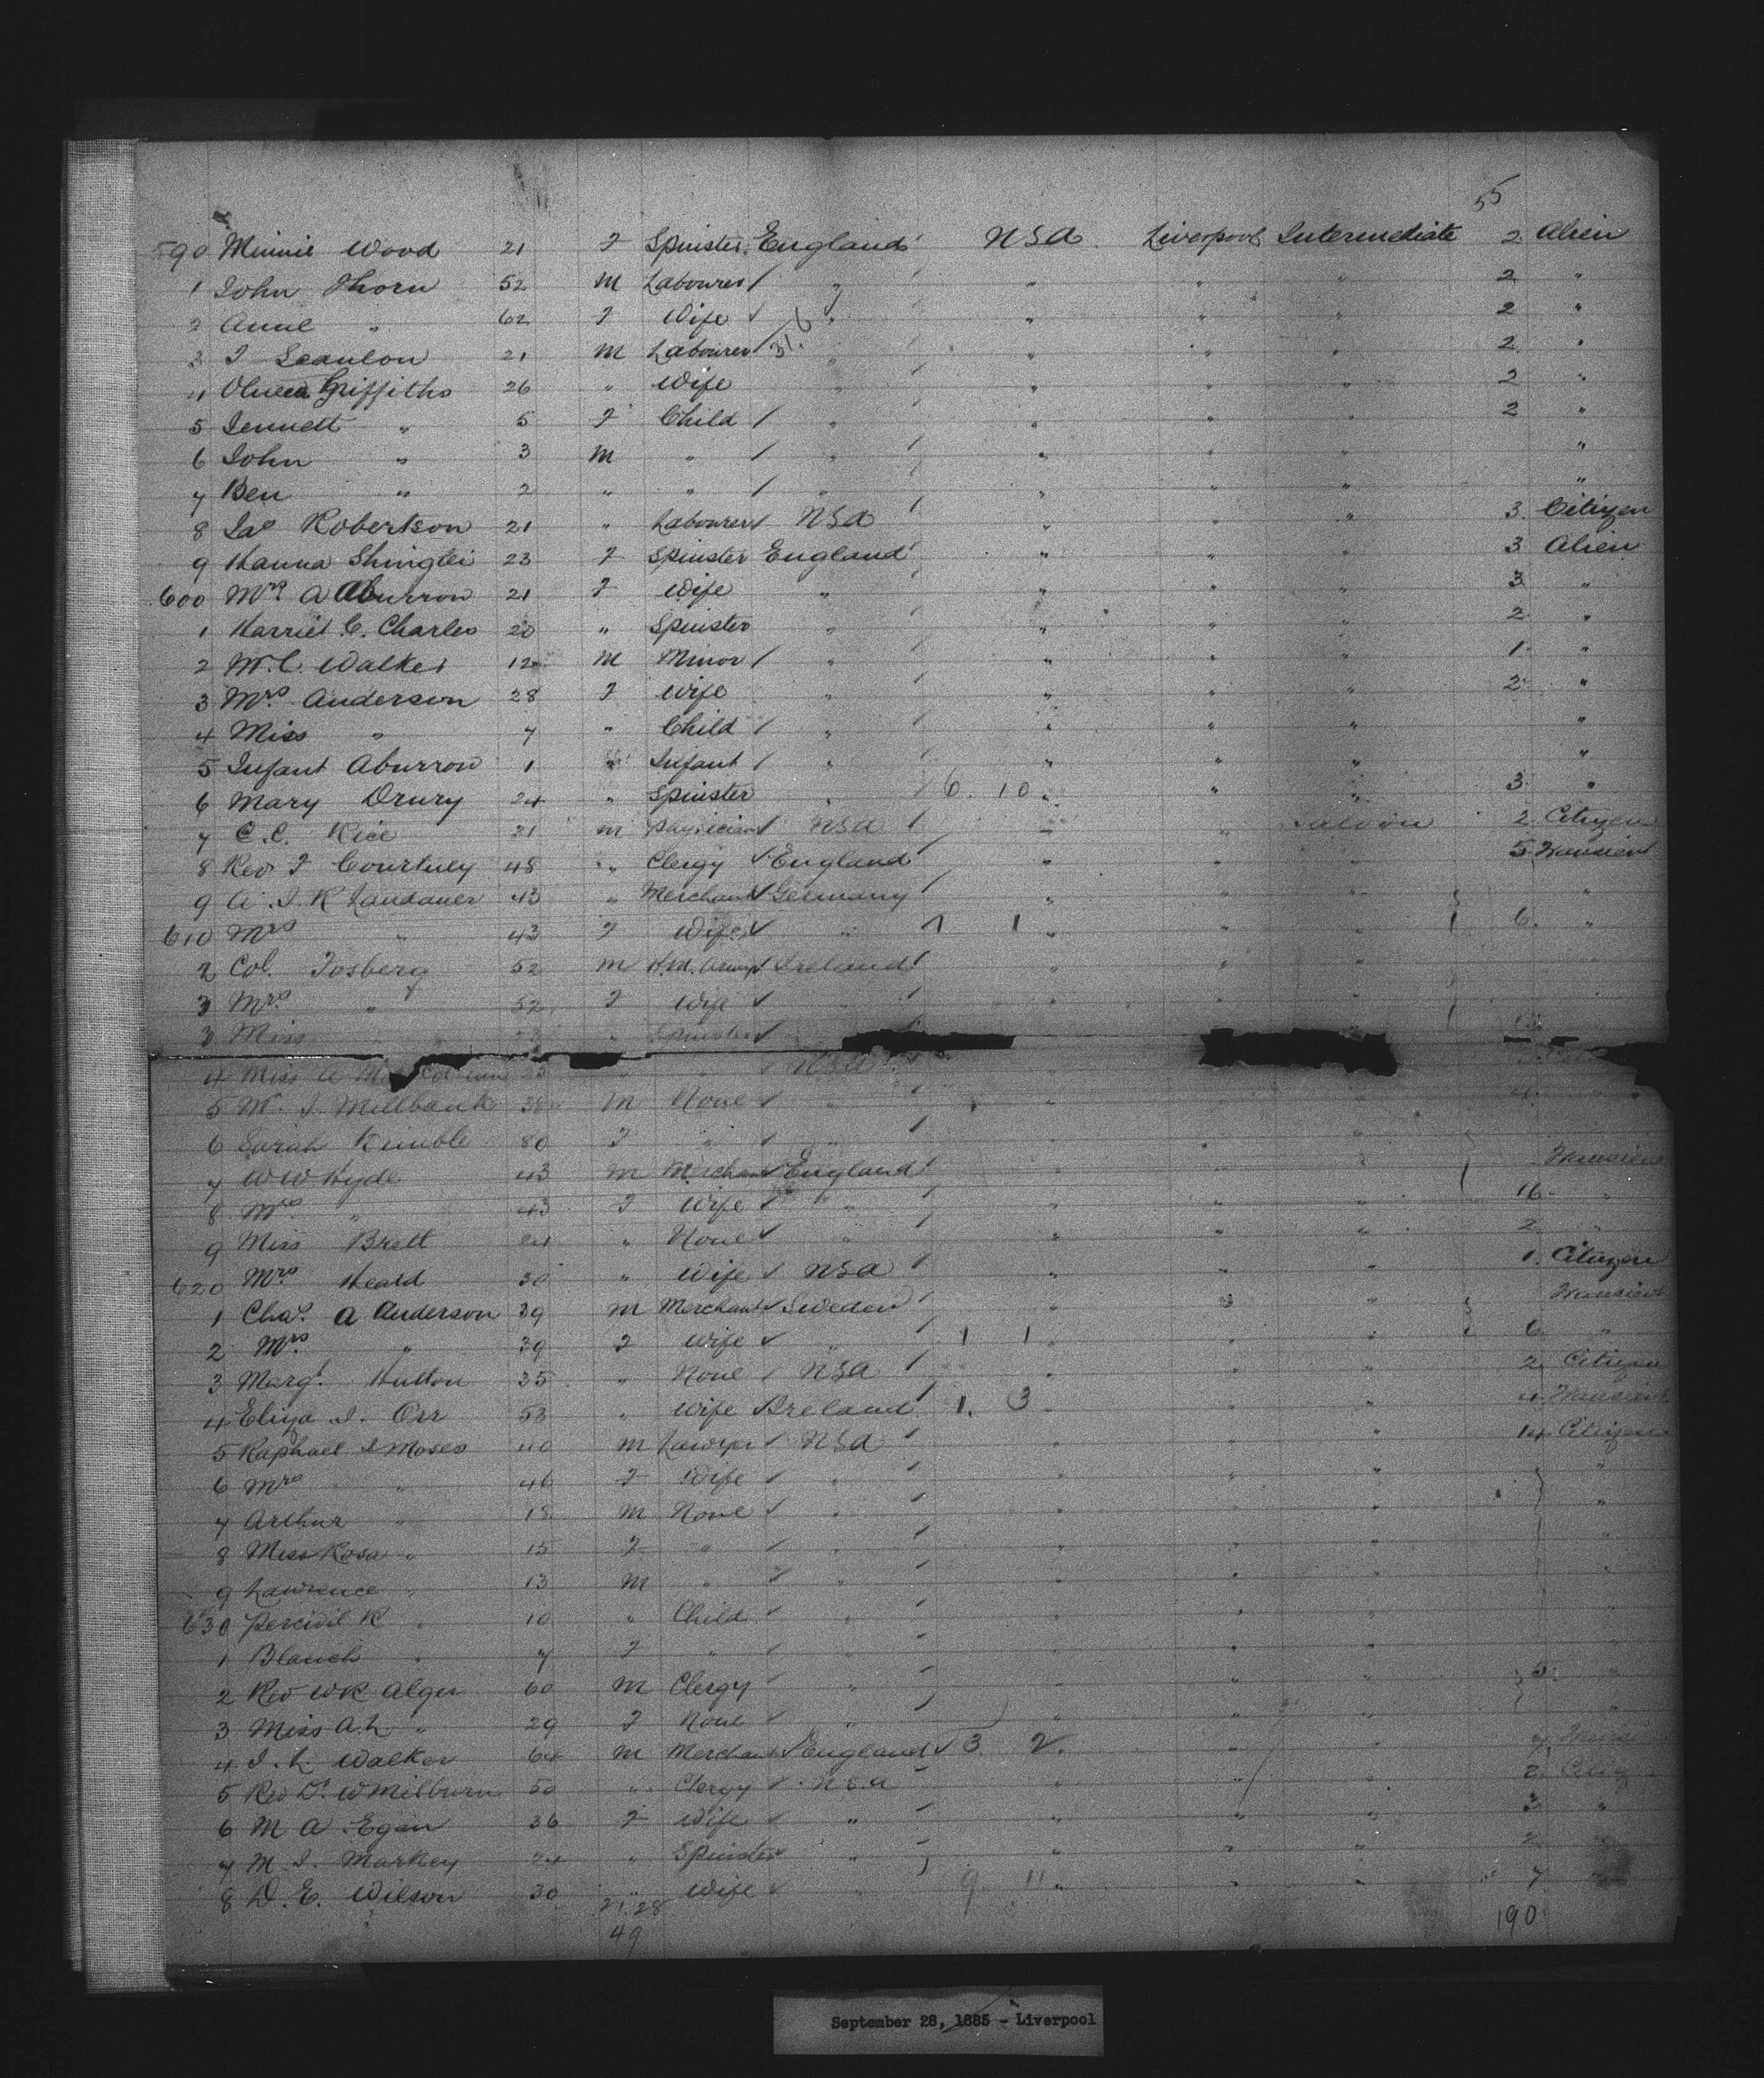 55
590 Minnie Wood 21 F Spinster England USA Liverpool Intermediate 2 Alien
1 John Thorn 52 M Labourer " " " " 2 "
2 Anne " 62 F Wife " " " " 2 "
3 J Scanlon 21 M Labourer " " " " 2 "
4 Griffiths 26 " Wife " " " " 2 "
5 Jennett " 5 F Child " " " " 2 "
6 John " 3 M " " " " " "
7 Ben " 2 " " " " " " "
8 Jas Robertson 21 " Labourer USA " " " 3 Citizen
9 Hanna 23 F Spinster England " " " 3 Alien
600 Mrs A Aburrow 21 F Wife " " " " 3 "
1 Harriet C. Charles 20 " Spinster " " " " 2 "
2 W. C. Walker 12 M Minor " " " " 1 "
3 Mrs Anderson 28 F Wife " " " " 2 "
4 Miss " 7 " Child " " " " "
5 Infant Aburrow 1 " Infant " " " " "
6 Mary Drury 24 " Spinster " 6 10 " " " 3 "
7 C. C. Rice 31 M Physician USA " " Saloon 2 Citizen
8 Rev F Courtney 48 " Clergy England " " " 5 Transient
9 A. J. R Landauer 43 " Merchant Germany " " " "
610 Mrs " 43 F Wife " 1 1 " " " 6 "
2 Col. Fosberg 52 M H.M. Army Ireland " " "
3 Mrs " 52 F Wife " " " "
3 Miss " Spinster
4 Miss A " " USA
5 W. J. Millbank 38 M None " " " " 4 "
6 Sarah Kimble 80 F " " " "
7 W W Hyde 43 M Merchant England " " " Transient
8 Mrs " 43 F Wife " " " " 16 "
9 Miss Brett 24 " None " " " " 2 "
620 Mrs Heald 30 " Wife USA " " " 1 Citizen
1 Chas. A Anderson 39 M Merchant Sweden " " " Transient
2 Mrs " 39 F Wife " 1 1 " " " 6 "
3 Margt. Hutton 35 " None USA " " " 2 Citizen
4 Eliza J. Orr 53 " Wife Ireland 1. 3 " " " 4 Transient
5 Raphael J Moses 40 M Lawyer USA " " " 14 Citizen
6 Mrs " 46 F Wife " " " " "
7 Arthur " 18 M None " " " " "
8 Miss Rosa " 15 F " " " " " "
9 Lawrence " 13 M " " " " "
630 Percivil R " 10 " Child " " " "
1 Blanch " 7 F " " " " "
2 Rev W R Alger 60 M Clergy " " " " 5 "
3 Miss A. L " 29 F None " " " " "
4 J. L Walker 64 M Merchant England 3 2. " " 7
5 Rev Dr. W Milburn 50 " Clergy U.S.A " " " 2
6 M A Egan 36 F Wife " " " " 3 "
7 M. J. Markey 24 " Spinster " " " " 2 "
8 D. E. Wilson 30 " Wife " 9 11 " " " 7 "
21.28
49
190
September 28, 1885 - Liverpool